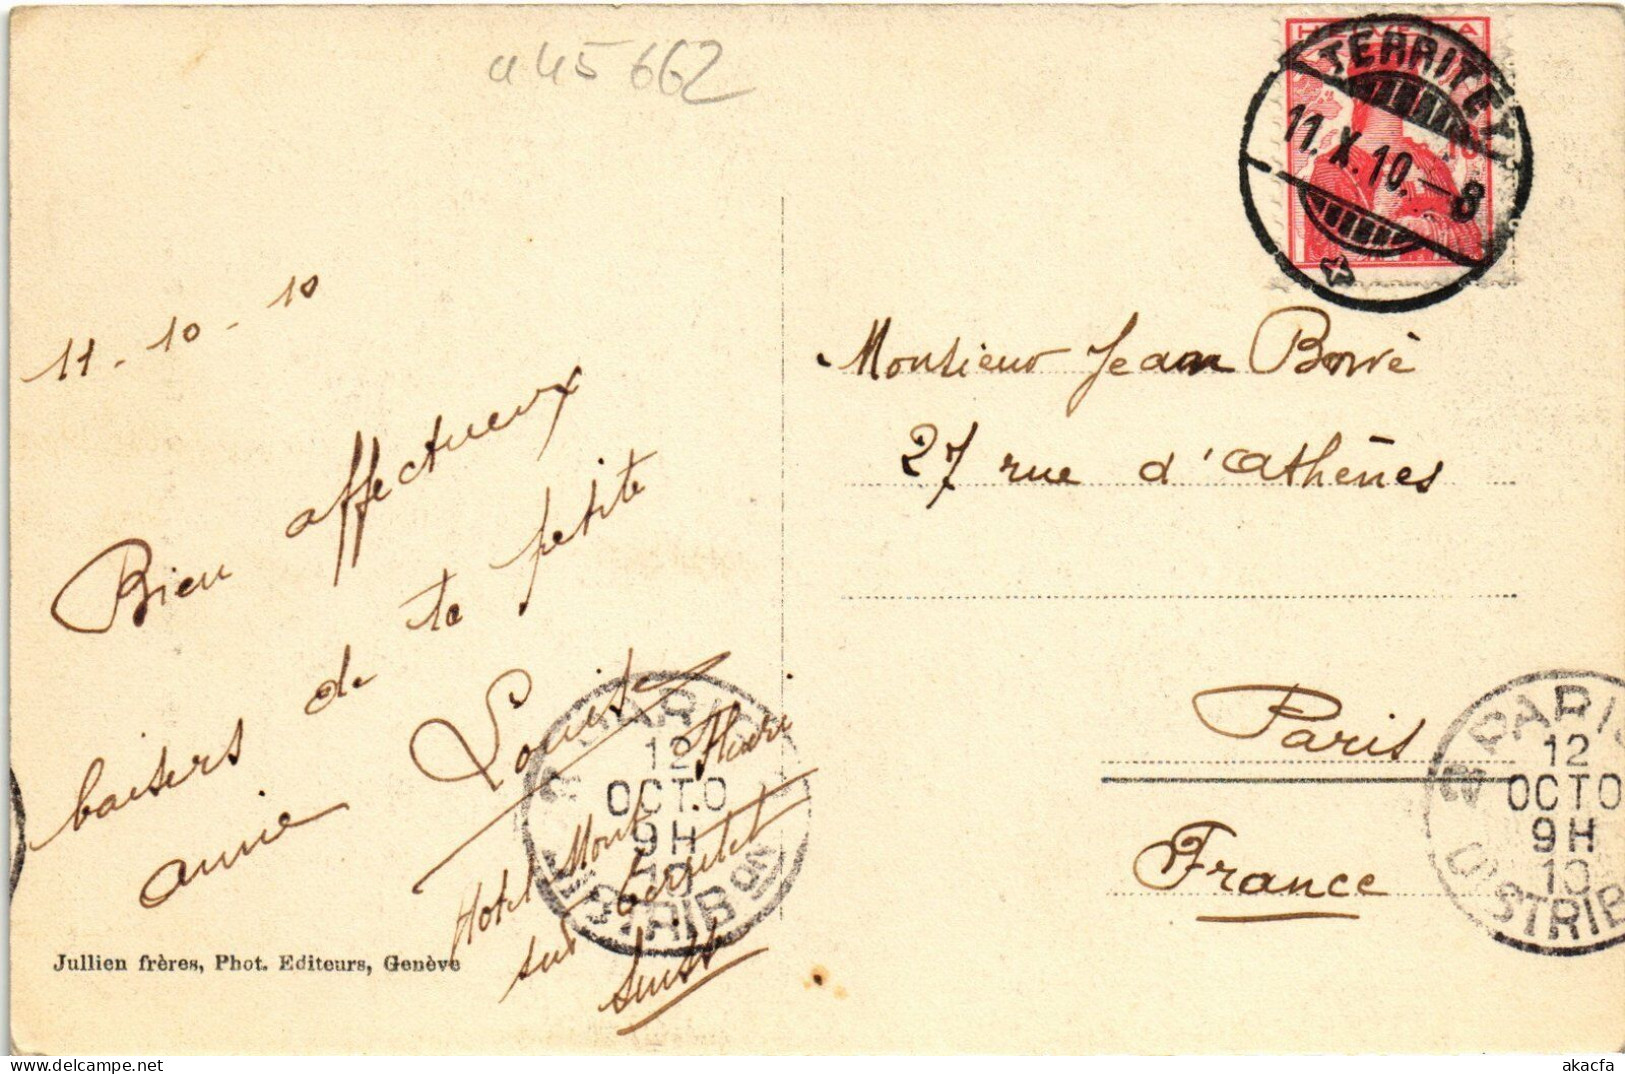 a45662
HELVETIA
TERRITET
11.X.10.-8
11-10-10
Bien affectueux
baisers de ta petite
amie Louise
Hotel Mont Fleuri
sur Territet
Suisse
Monsieur Jean
27 rue d'Athènes
Paris
France
PARIS
12
OCTO
9H
10
DISTRIB
PARIS
12
OCTO
9H
10
DISTRIB
Jullien frères, Phot. Editeurs, Genève
akacfa